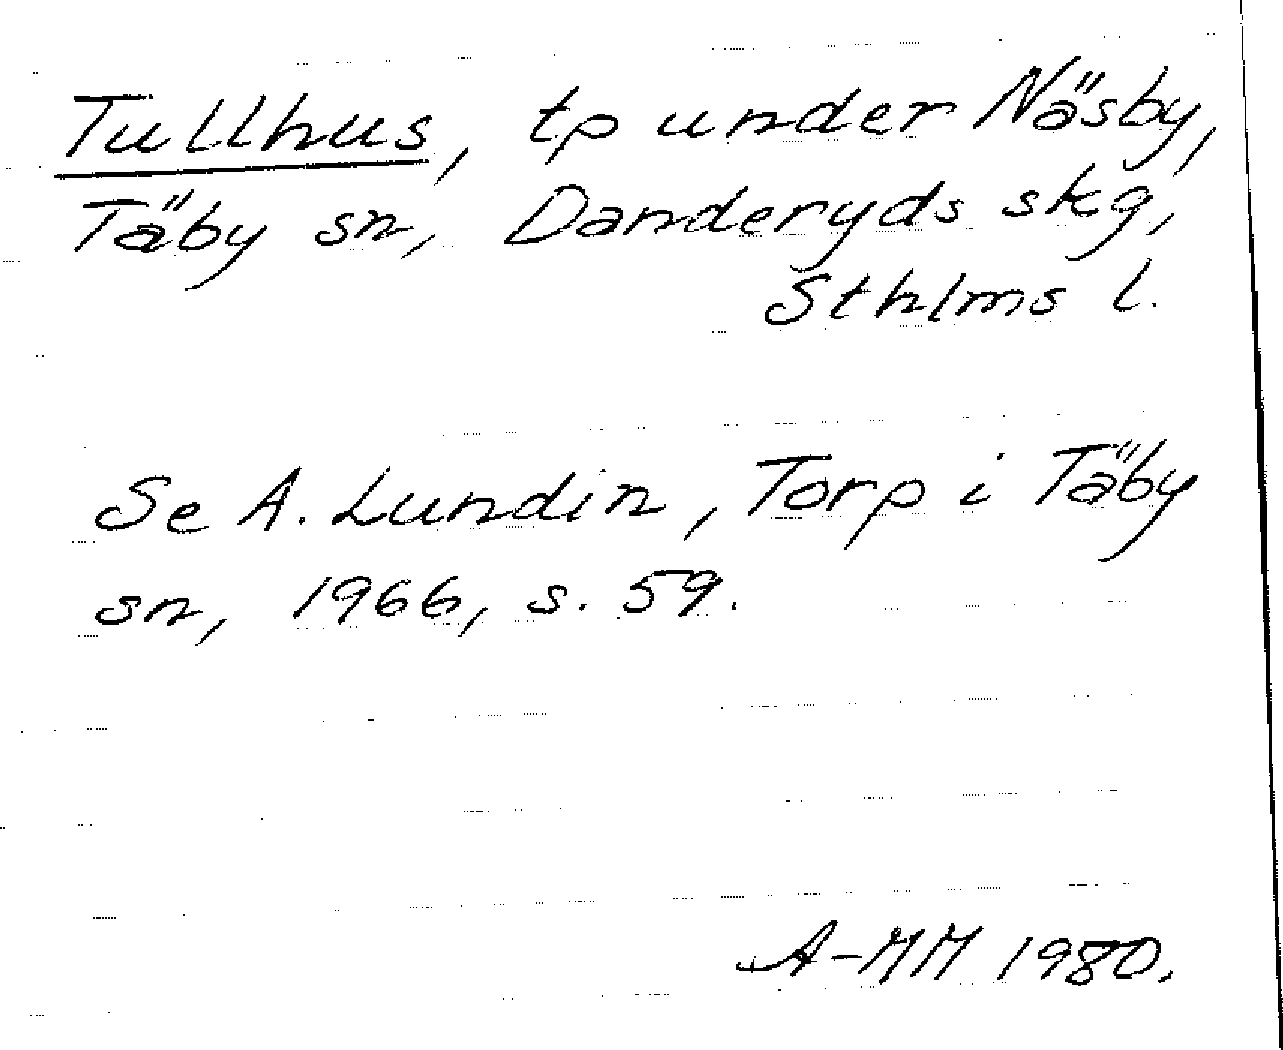 Tullhus, tp under Näsby,
Täby sn, Danderyds skg,
Sthlms l.
Se A. Lundin, Torp i Täby
sn, 1966, s. 59.
A-MM 1980.